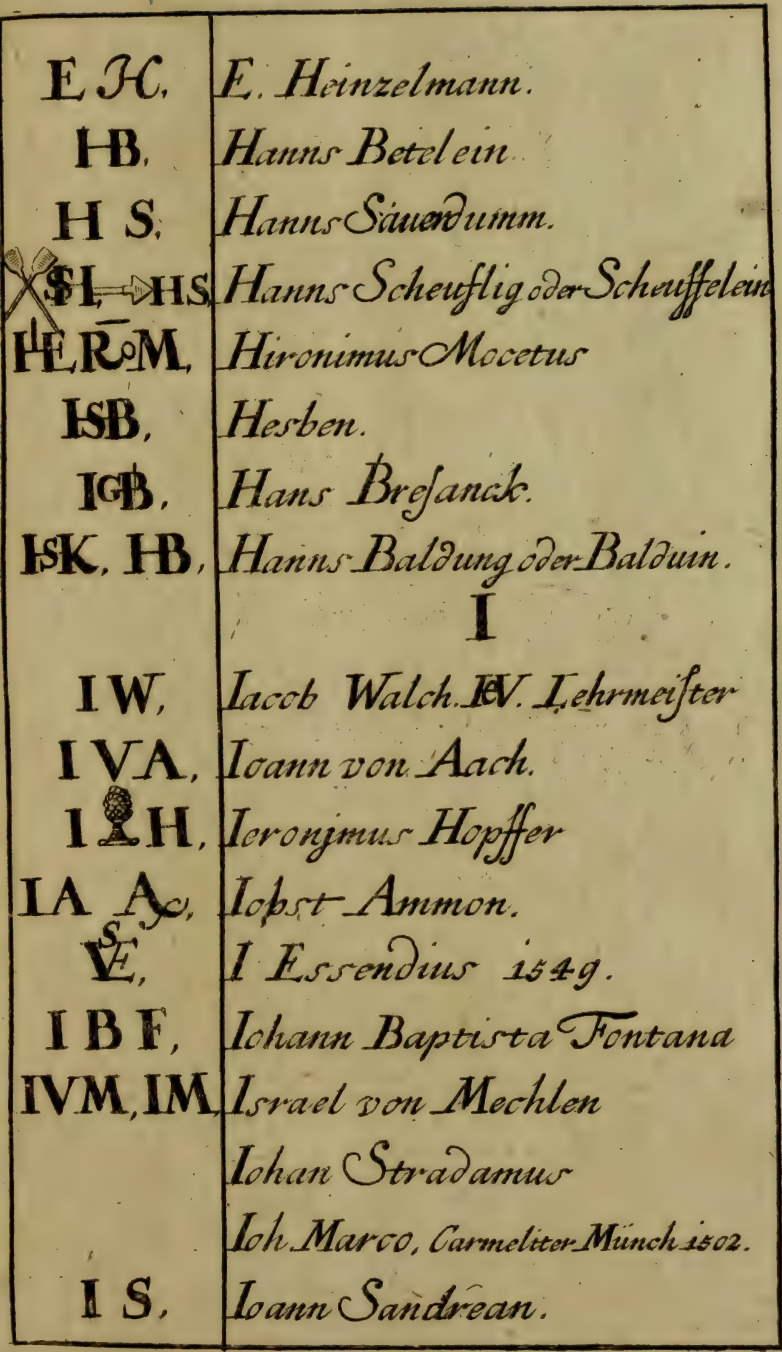 E H, E. Heinzelmann.
HB, Hanns Betelein
H S, Hanns Säuerdumm.
SH, HS, Hanns Scheuflig oder Scheuffelein
HIERoM, Hironimus Mocetus
HSB, Hesben.
IGB, Hans Bresanck.
HSK, HB, Hanns Baldung oder Balduin.
I
I W, Iacob Walch. Lehrmeister
I V A, Ioann von Aach.
I H, Ieronimus Hopffer
IA A, Iobst Ammon.
VSE, I Essendius 1549.
I B F, Iohann Baptista Fontana
IVM, IM, Israel von Mechlen
Iohan Stradamus
Ioh. Marco, Carmeliter Münch 1502.
I S, Ioann Sandrean.